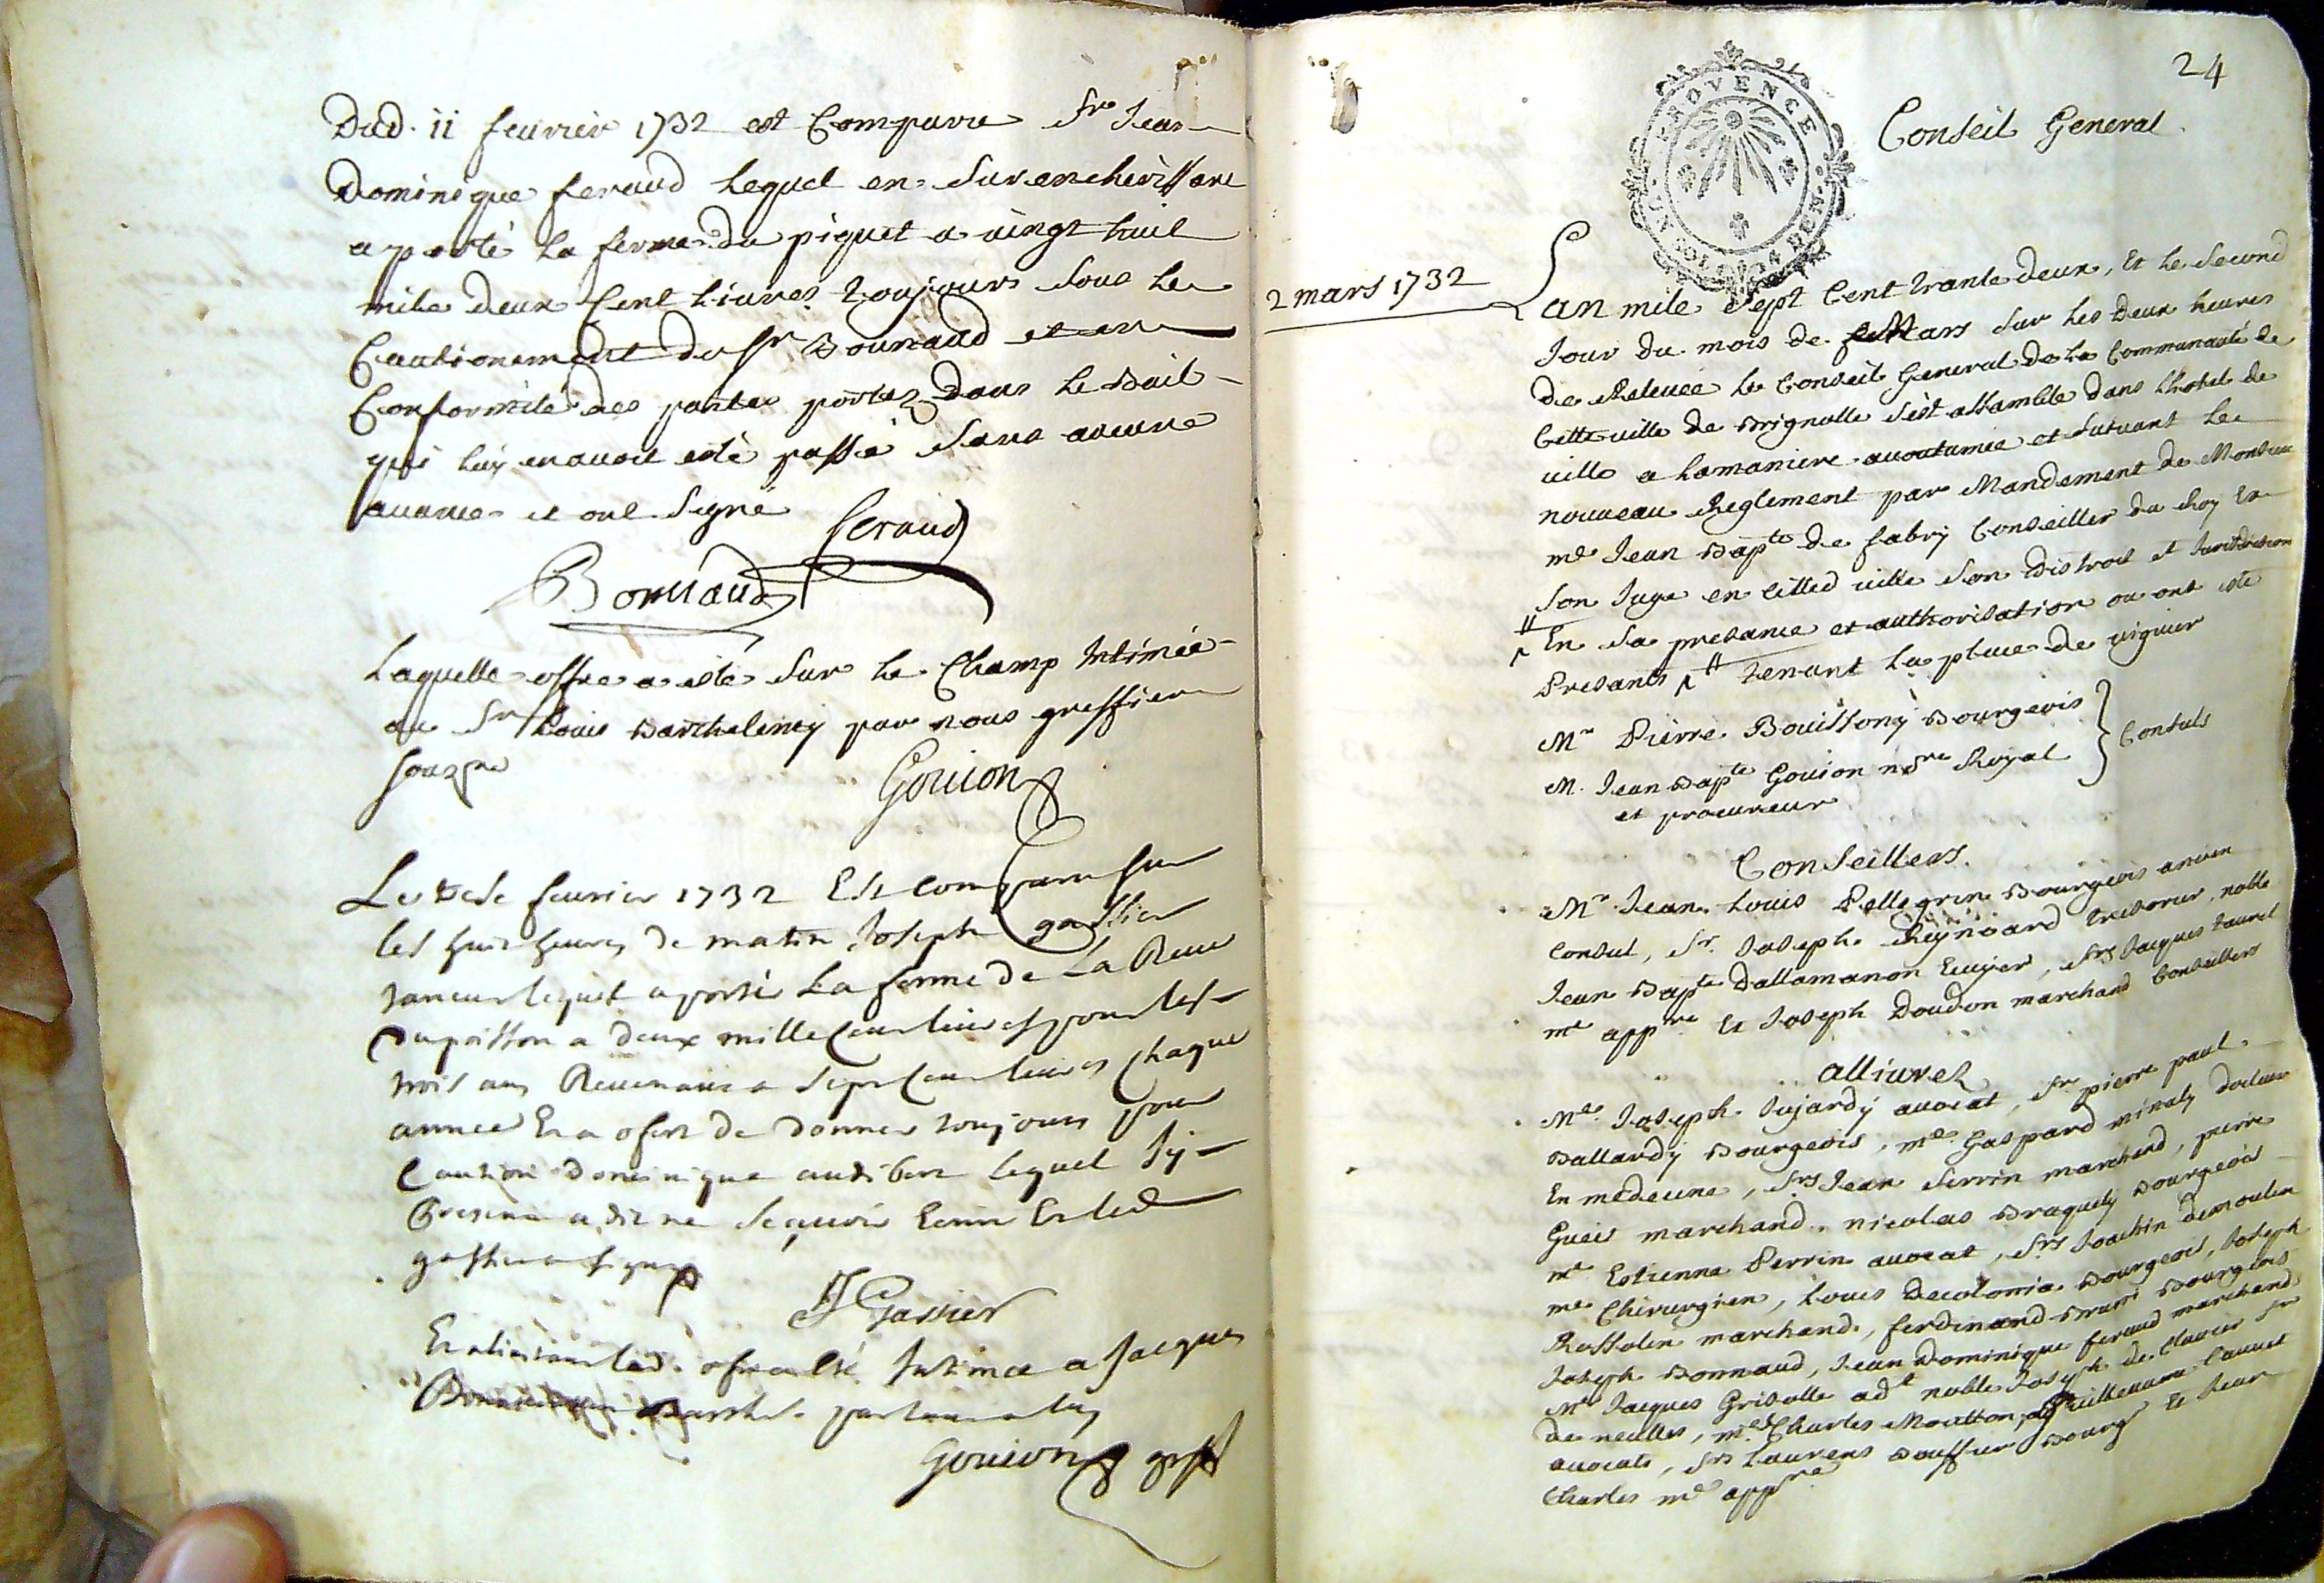 Dud. 11 feurier 1732 est Comparu Sr Jean
Dominique feraud Lequel en Surencherissant
a porté La ferme du piquet a vingt huit
mille deux Cent Liures toujours Sous le
Cautionement du Sr Bonnaud et en
Conformité des pactes portez dans le Bail
qui luy en avoit esté passé Sans aucune
auance et ont Signé
feraud
Bonnaud
Laquelle offre a esté Sur le Champ Intimée
au Sr Louis Barthelemy par nous greffier
souzne
Gouion
Le feurier 1732 Est comparu sur
les huit heures de matin Joseph gassier
taneur lequel a porté La ferme de La Reue
du poisson a deux mille cent liures pour les
trois ans Reuenant a sept cent liures chaque
année Et a ofert de donner toujours pour
Caution Dominique audibert lequel Icy
Present a dit ne scauoir Ecrire Et led
gassier a signé
J Gassier
Et led. ofre a esté Intimée a Jacques
Gouion greff
24
PROVENCE
Conseil General
2 mars 1732
Lan mile Sept Cent trante deux, Et le Second
Jour du mois de Mars Sur les deux heures
de Releuée le Conseil General de la Communauté de
Cette ville de Brignolle S'est assamblé dans L'hotel de
ville a la maniere accoutumée et Suiuant le
nouveau Reglement par Mandement de Monsieur
me Jean Bapte de fabry Conseiller du Roy Et
Son Juge en cetted ville Son distroit et Jurisdiction
En Sa presance et authorisation ou ont esté
Presants tenant la place de viguier
Mr Pierre Bouissony Bourgeois
M. Jean Bapte Gouion nore Royal
et procureur
Consuls
Conseillers.
Mr Jean Louis Pellegrin Bourgeois ancien
Consul, Sr. Joseph Reynoard tresorier, noble
Jean Bapte Dallamanon Ecuyer, Srs Jacques taurel
me appre Et Joseph Doudon marchand Conseillers
alliurez
Me Joseph Jujardy auocat, Sr pierre paul
Ballardy Bourgeois, me Gaspard minaty docteur
En medecine, Srs Jean Serrin marchand, pierre
Gueit marchand, nicolas Braquety Bourgeois
me Estienne Perrin auocat, Srs Joachin Demoulin
me Chirurgien, Louis Decolonia Bourgeois, Joseph
Rossolin marchand, ferdinand Bourgeois
Joseph Bonnaud, Jean Dominique feraud marchand
Mr Jacques Grisolle adt noble Joseph de Clauier Sr
de neulles, mes Charles Moutton, Guilleaume Cauuet
auocats, Srs Laurens Bourg Et Jean
Charles me appre